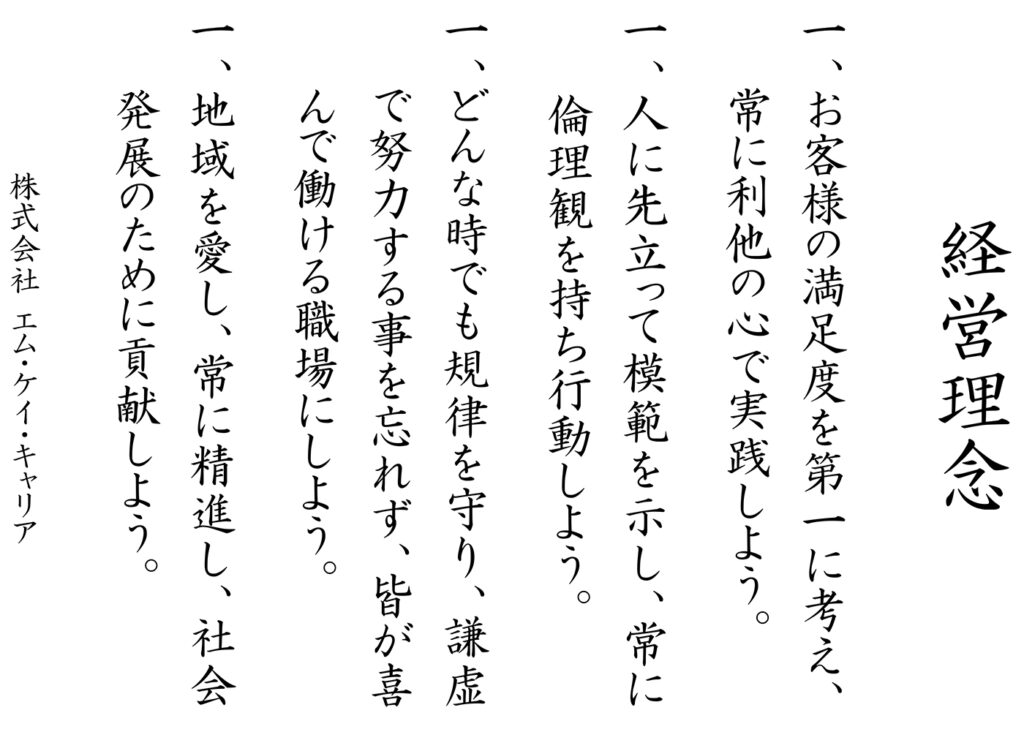 経営理念
一、お客様の満足度を第一に考え、
常に利他の心で実践しよう。
一、人に先立って模範を示し、常に
倫理観を持ち行動しよう。
一、どんな時でも規律を守り、謙虚
で努力する事を忘れず、皆が喜
んで働ける職場にしよう。
一、地域を愛し、常に精進し、社会
発展のために貢献しよう。
株式会社 エム・ケイ・キャリア